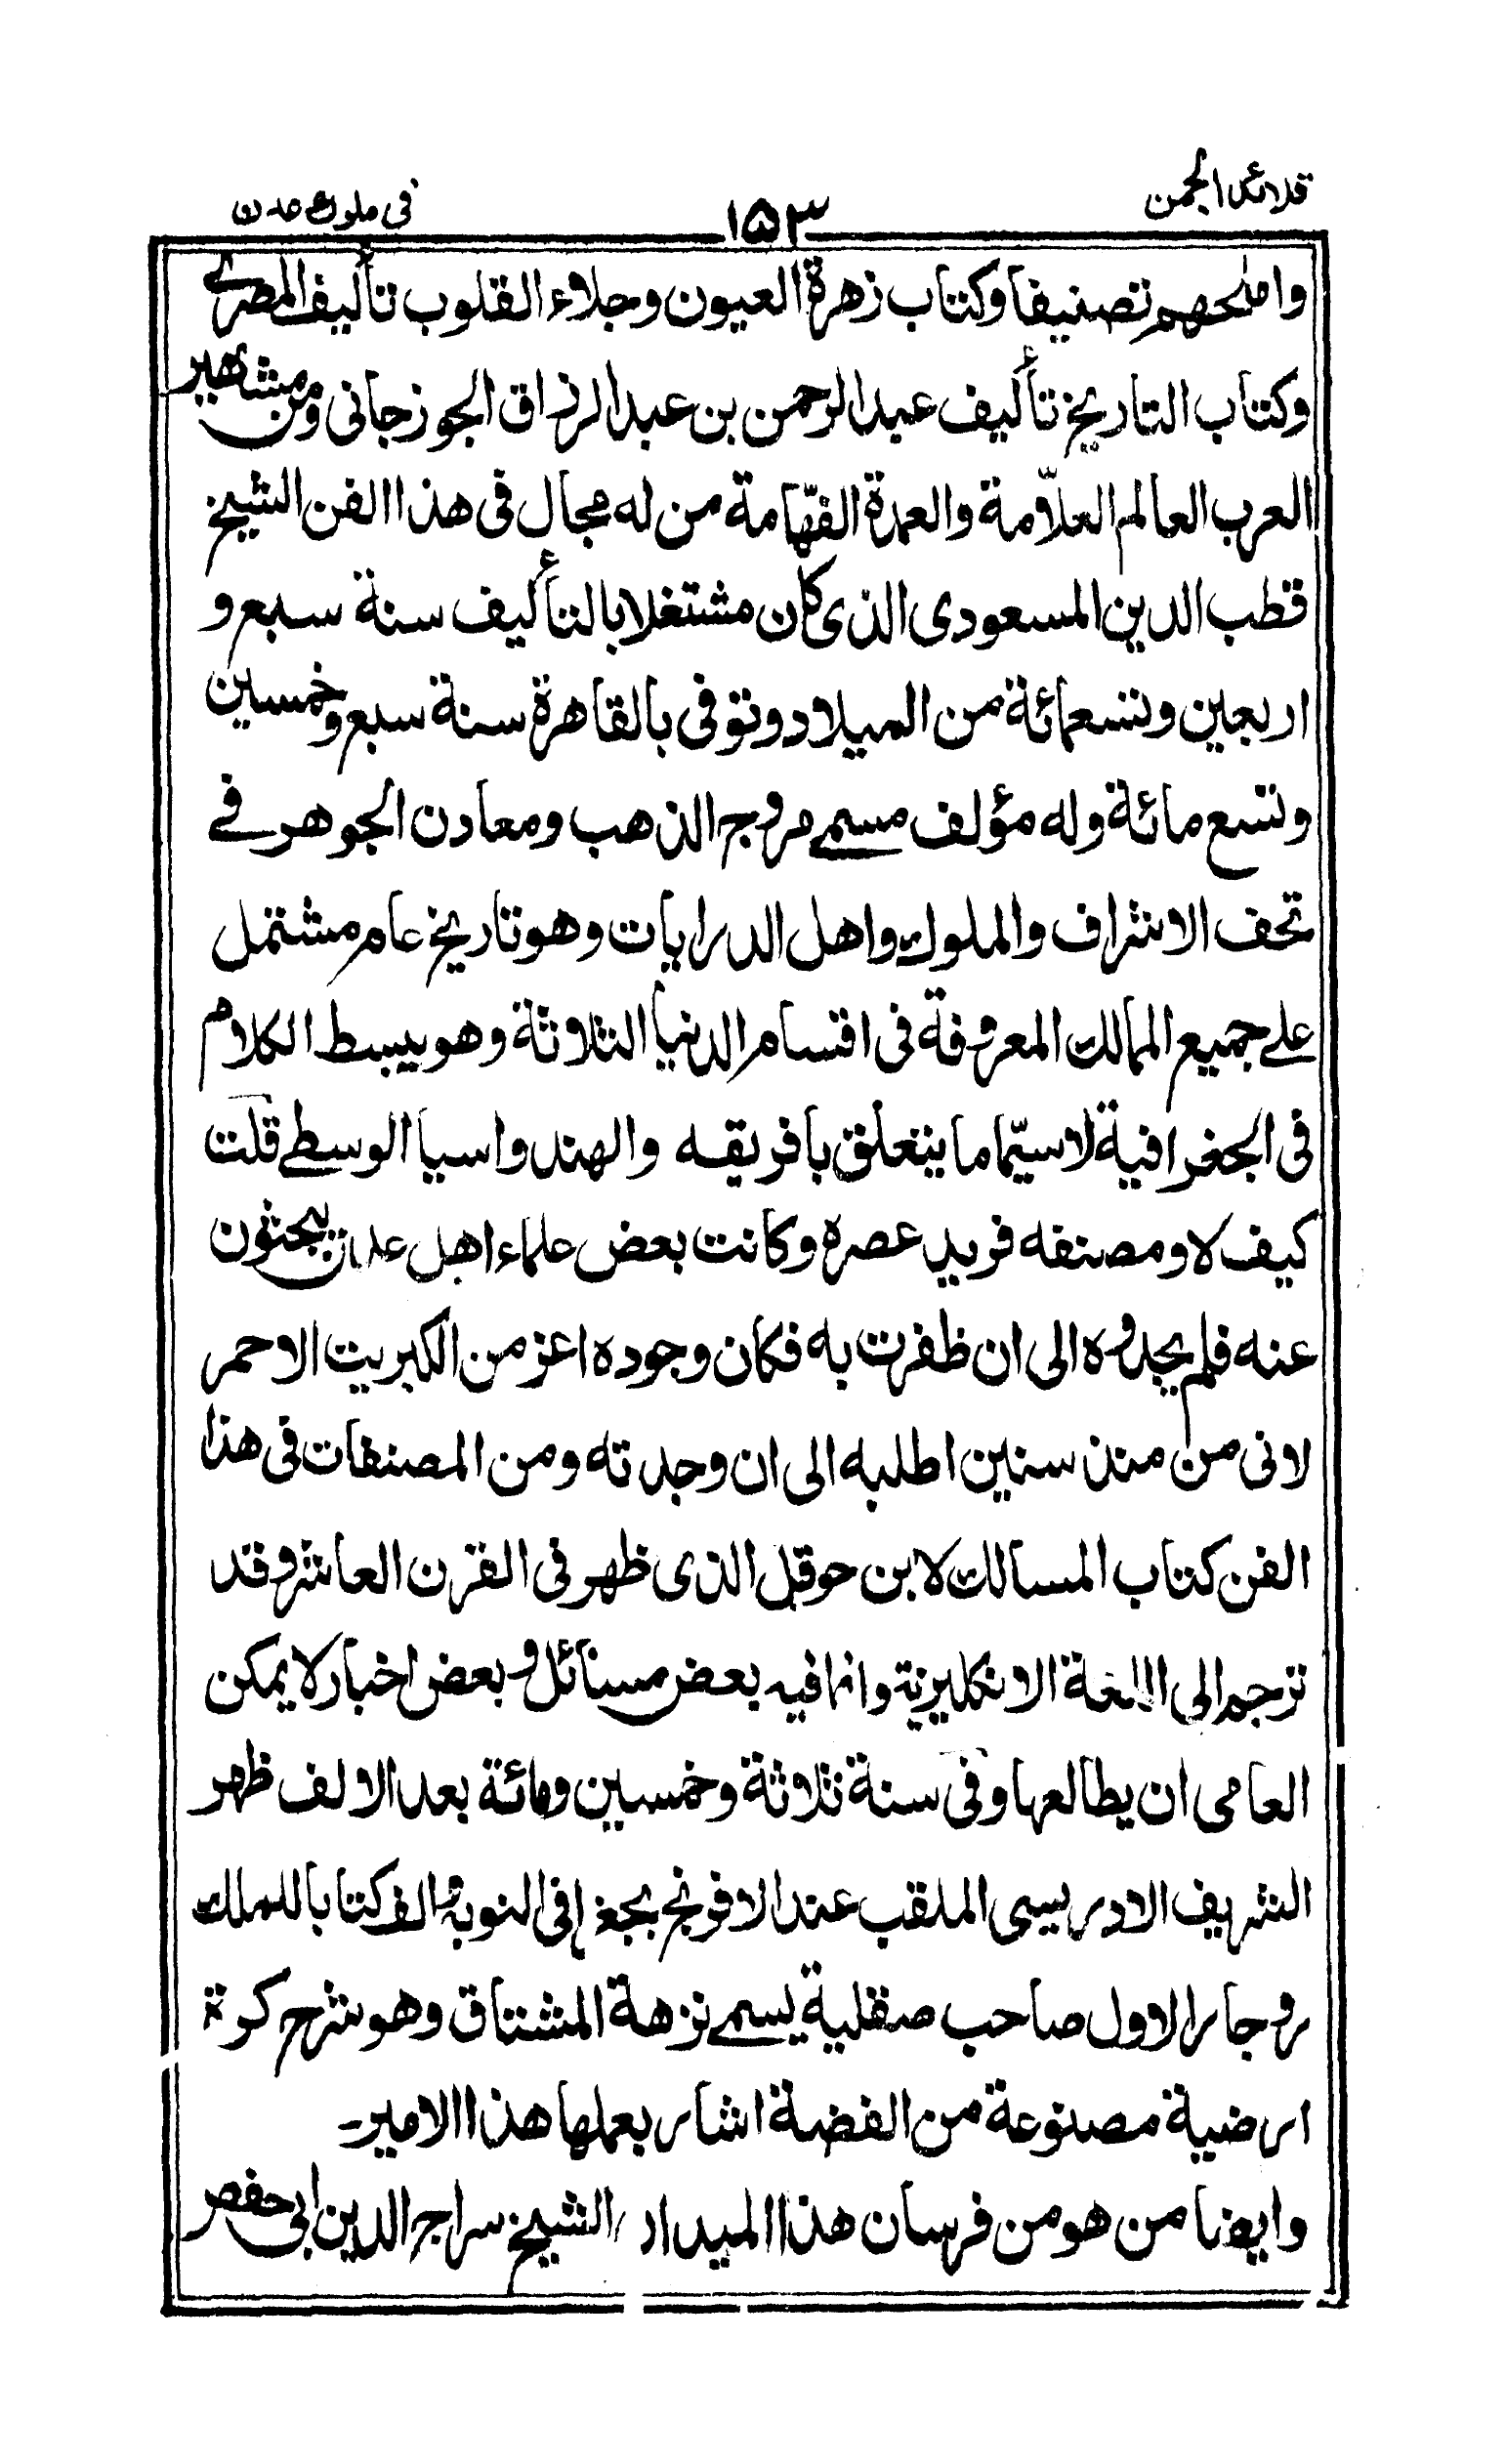 قلائد الجمن ١٥٣ فى ملوك عدن
واملحهم تصنيفا وكتاب زهرة العيون وجلاء القلوب تأليف المصرى
وكتاب التاريخ تأليف عبد الرحمن بن عبد الرزاق الجوزجانى ومن مشاهير
العرب العالم العلّامة والعمدة الفهّامة من له مجال فى هذا الفن الشيخ
قطب الدين المسعودى الذى كان مشتغلا بالتأليف سنة سبع و
اربعين وتسعمائة من الميلاد وتوفى بالقاهرة سنة سبع وخمسين
وتسع مائة وله مؤلف مسمى مروج الذهب ومعادن الجوهر فى
تحف الاشراف والملوك واهل الدرايات وهو تاريخ عام مشتمل
على جميع الممالك المعروفة فى اقسام الدنيا الثلاثة وهو يبسط الكلام
فى الجغرافية لاسيّما ما يتعلق بافريقه والهند واسيا الوسطى قلت
كيف لا ومصنفه فريد عصره وكانت بعض علماء اهل عدن يبحثون
عنه فلم يجدوه الى ان ظفرت به فكان وجوده اعز من الكبريت الاحمر
لانى من منذ سنين اطلبه الى ان وجدته ومن المصنفات فى هذا
الفن كتاب المسالك لابن حوقل الذى ظهر فى القرن العاشر وقد
ترجم الى اللغة الانكليزية وانما فيه بعض مسائل وبعض اخبار لا يمكن
العامى ان يطالعها وفى سنة ثلاثة وخمسين ومائة بعد الالف ظهر
الشريف الادريسى الملقب عند الافرنج بجغرافى النوبة والف كتابا للملك
روجار الاول صاحب صقلية يسمى نزهة المشتاق وهو شرح كرة
ارضية مصنوعة من الفضة اشار بعملها هذا الامير
وايضا من هو من فرسان هذا الميدان الشيخ سراج الدين ابى حفص